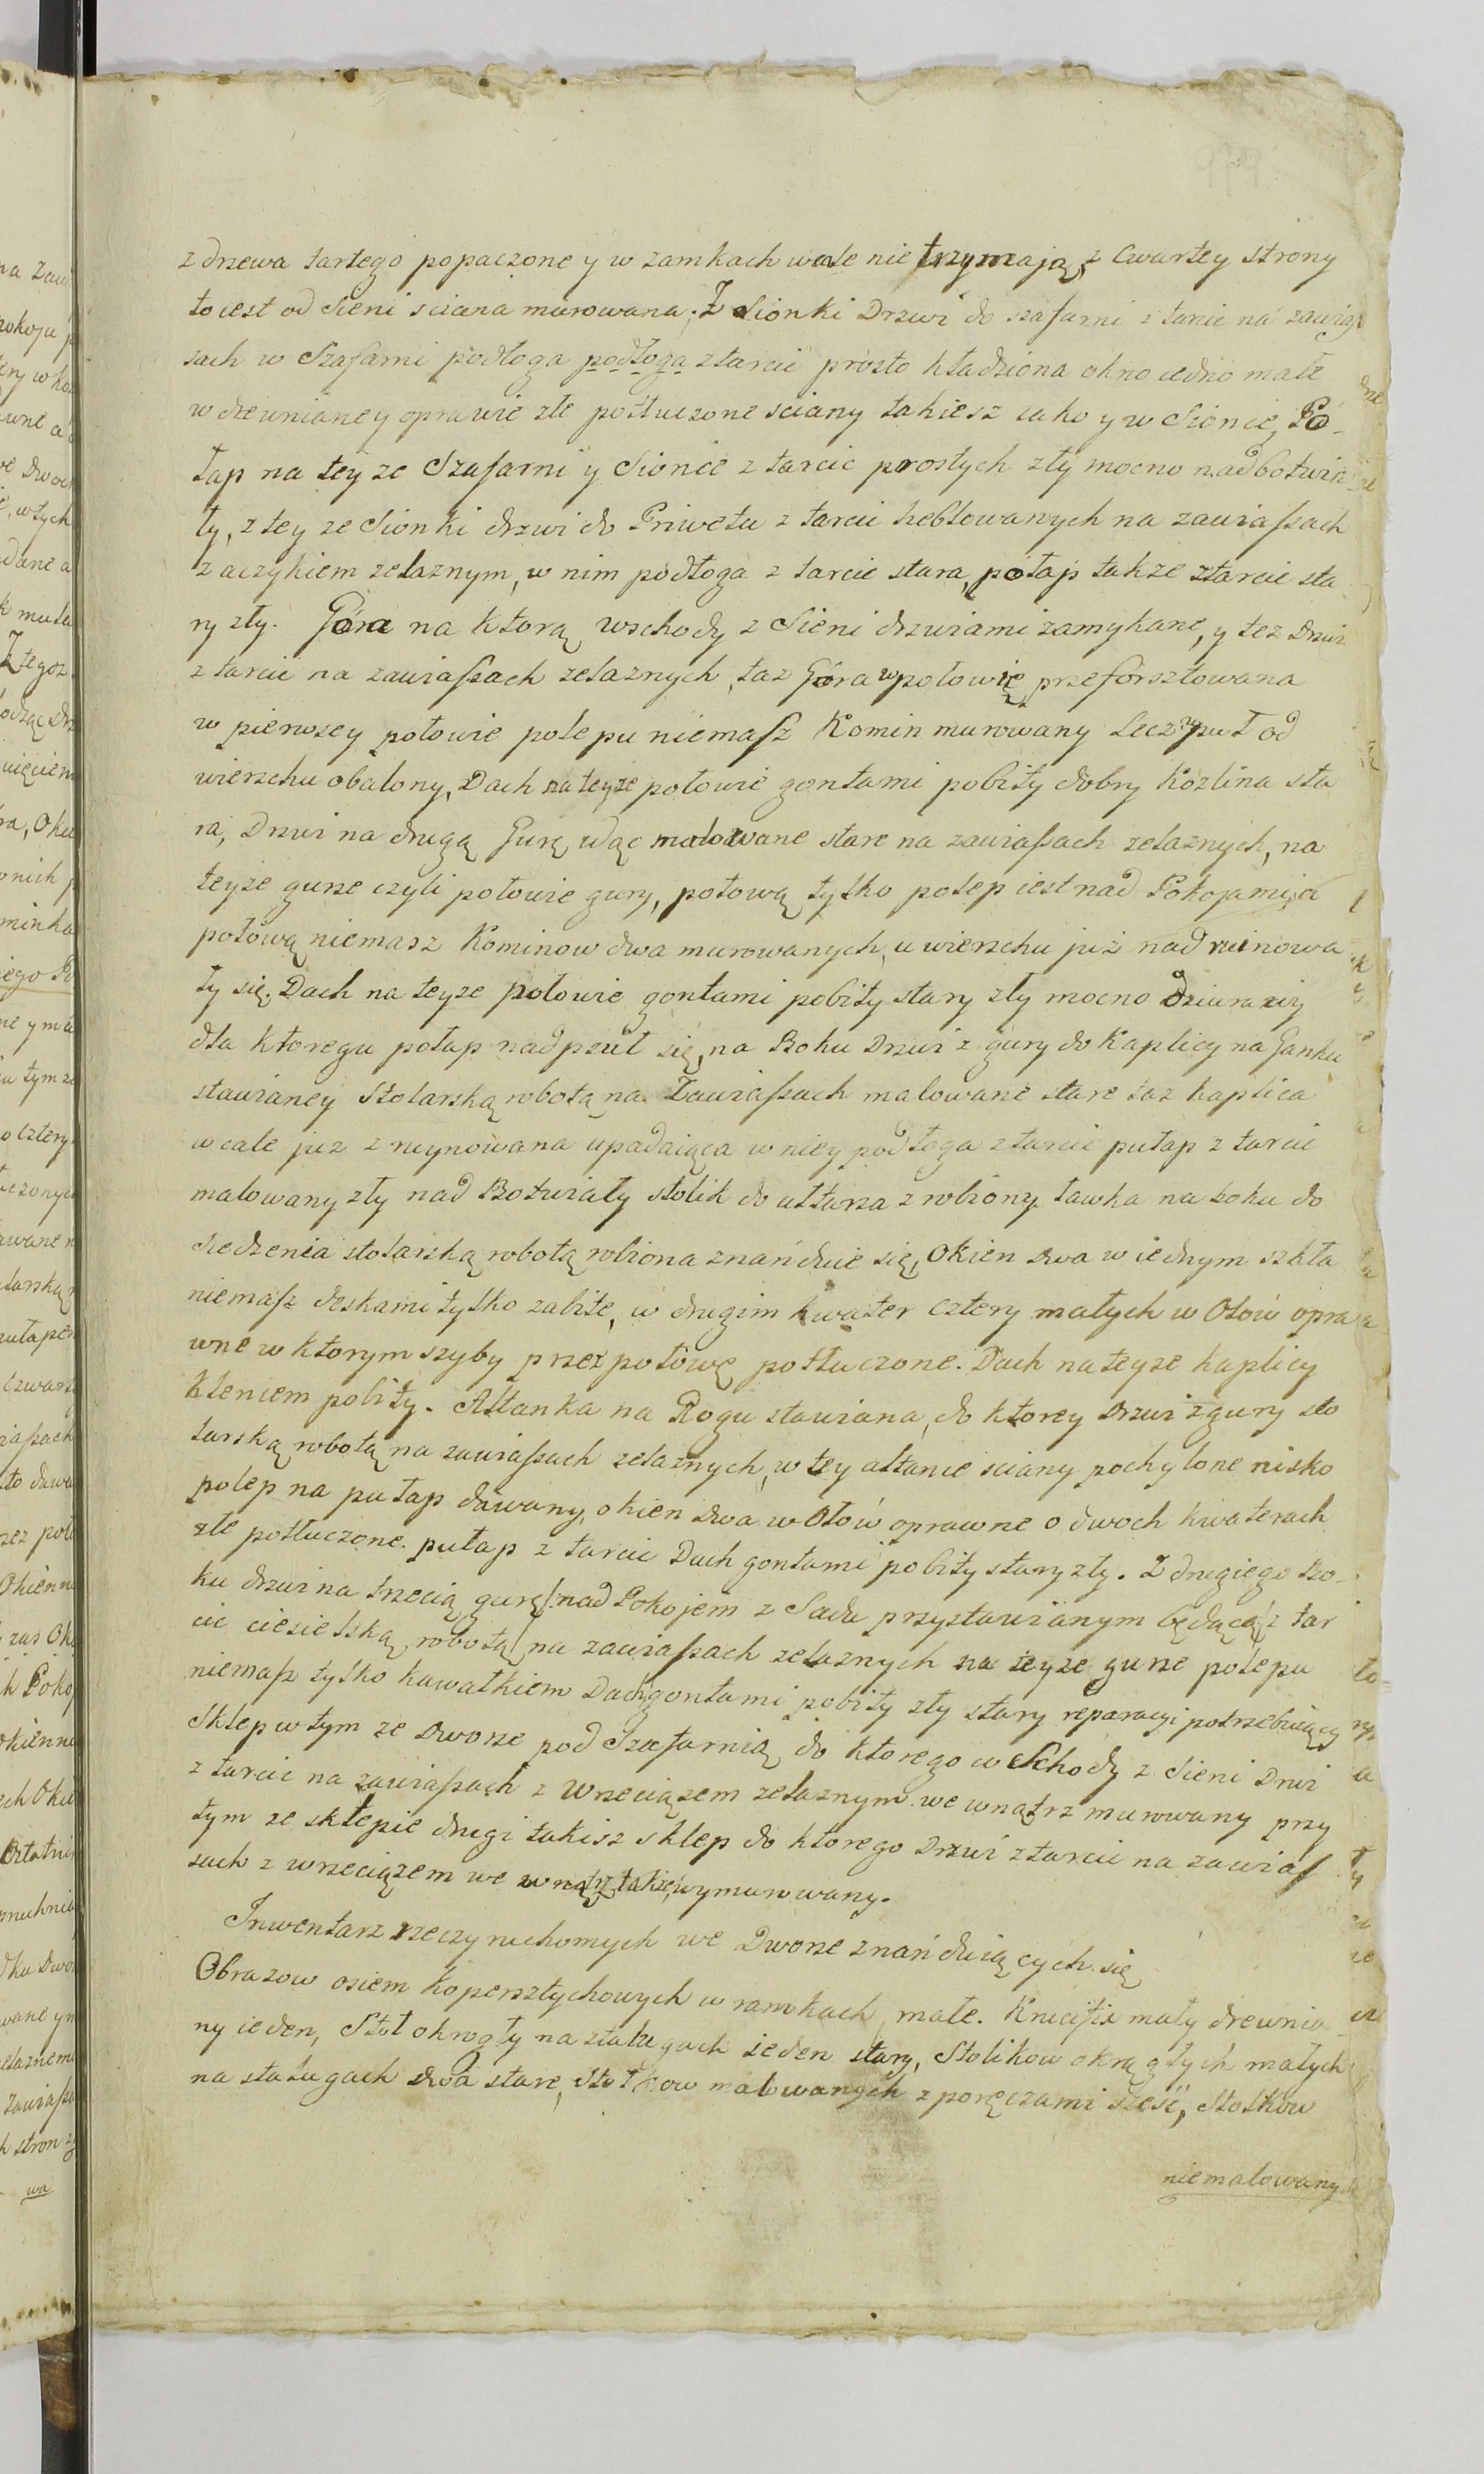 z drzewa tartego popaczone y w zamkach wcale nie trzymaią, z Cwartey strony
to iest od Sieni sciana murowana. Z Sionki Drzwi do szafarni z tarcic na zawias
sach w Szafarni podłoga podłoga z tarcic prosto kładziona okno iedno małe
w drewnianey oprawie złe potłuczone sciany takiesz iako y w Sionce, Po-
łap na tey ze Szafarni y Sionce z tarcic prostych zły mocno nadbotwia
ły, z tey ze Sionki drzwi do Priwetu z tarcic heblowanych na zawiaſsach
z aczykiem zelaznym, w nim podłoga z tarcic stara, połap takze z tarcic sta
ry zły. Góra na ktorą wschody z Sieni drzwiami zamykane, y tez Drzwi
z tarcic na zawiaſsach zelaznych, taz Góra w połowię przeforsztowana
w pierwszey połowie polepu niemaſz Komin murowany Lecz wpuł od
wierzchu obalony, Dach na teyze połowie gontami pobity dobry Kozlina sta
ra, Drzwi na drugą Gurę idąc malowane stare na zawiaſsach zelaznych, na
teyze gurze czyli połowie gury, połową tylko polep iest nad Pokojami, a
połową niemasz Kominow dwa murowanych, u wierzchu już nadruinowa
ły się. Dach na teyze połowie gontami pobity stary zły mocno dziurawy
dla ktoregu połap nadpsuł się, na Boku Drzwi z gury do Kaplicy na Ganku
stawianey Stolarską robotą na Zawiaſsach malowane stare taz kaplica
wcale juz zruynowana upadaiąca w niey podłoga z tarcic pułap z tarcic
malowany zły nad Botwiały stolik do ułtarza zrobiony ławka na boku do
siedzenia stolarską robotą robiona znayduie się, Okien dwa w iednym szkła
niemaſz deskami tylko zabite, w drugim kwater cztery małych w Ołów opra
wne w ktorym szyby przez połowę potłuczone. Dach na teyze kaplicy
kleniem pobity. Altanka na Rogu stawiana, do ktorey Drzwi z gury sto
larską robotą na zawiaſsach zelaznych, w tey altance sciany pochylone nisko
polep na pułap dawany, okien dwa w Ołów oprawne o dwoch kwaterach
złe potłuczone. pułap z tarcic Dach gontami pobity stary zły. Z drugiego Bo-
ku drzwi na trzecią gurę nad Pokojem z Sadu przystawianym będącą z tar
cic ciesielską robotą na zawiaſsach zelaznych na teyze gurze polepu
niemaſz tylko kawałkiem Dach gontami pobity zły stary reparacyi potrzebuiący
Sklep w tym ze Dworze pod Szafarnią do ktorego wschody z Sieni Drzwi
z tarcic na zawiaſsach z Wrzeciązem zelaznym we wnątrz murowany przy
tym ze sklepie drugi takisz sklep do ktorego Drzwi z tarcic na zawiaſ
sach z wrzeciązem we wnątrz także wymurowany.
Inwentarz rzeczy ruchomych we Dworze znayduiących się
Obrazow osiem kopersztychowych w ramkach małe. Krucifix mały drewnia-
ny ieden, Stoł okrągły na stalugach ieden stary, Stolikow okrągłych małych
na stalugach dwa stare, Stołkow malowanych z poręczami sześć, Stołkow
niemalowanych